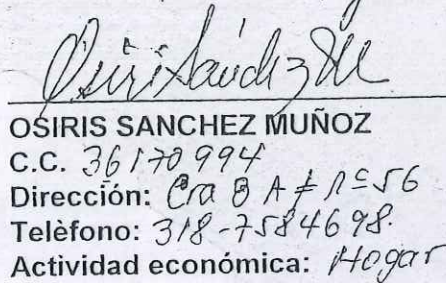 Osiris Sánchez M
OSIRIS SANCHEZ MUÑOZ
C.C. 36170994
Dirección: Cra 8 A # 1C-56
Telèfono: 318-7584698.
Actividad económica: Hogar